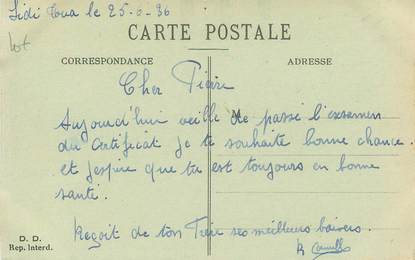 Sidi Aïssa le 25-6-36
CARTE POSTALE
CORRESPONDANCE
ADRESSE
Cher Pierre
Aujourd'hui veille de passé l'examen
du Certificat je te souhaite bonne chance.
et j'espire que tu est toujours en bonne
santé.
Reçoit de ton Frère ses meilleurs baisers.
R Camille
D. D.
Rep. Interd.